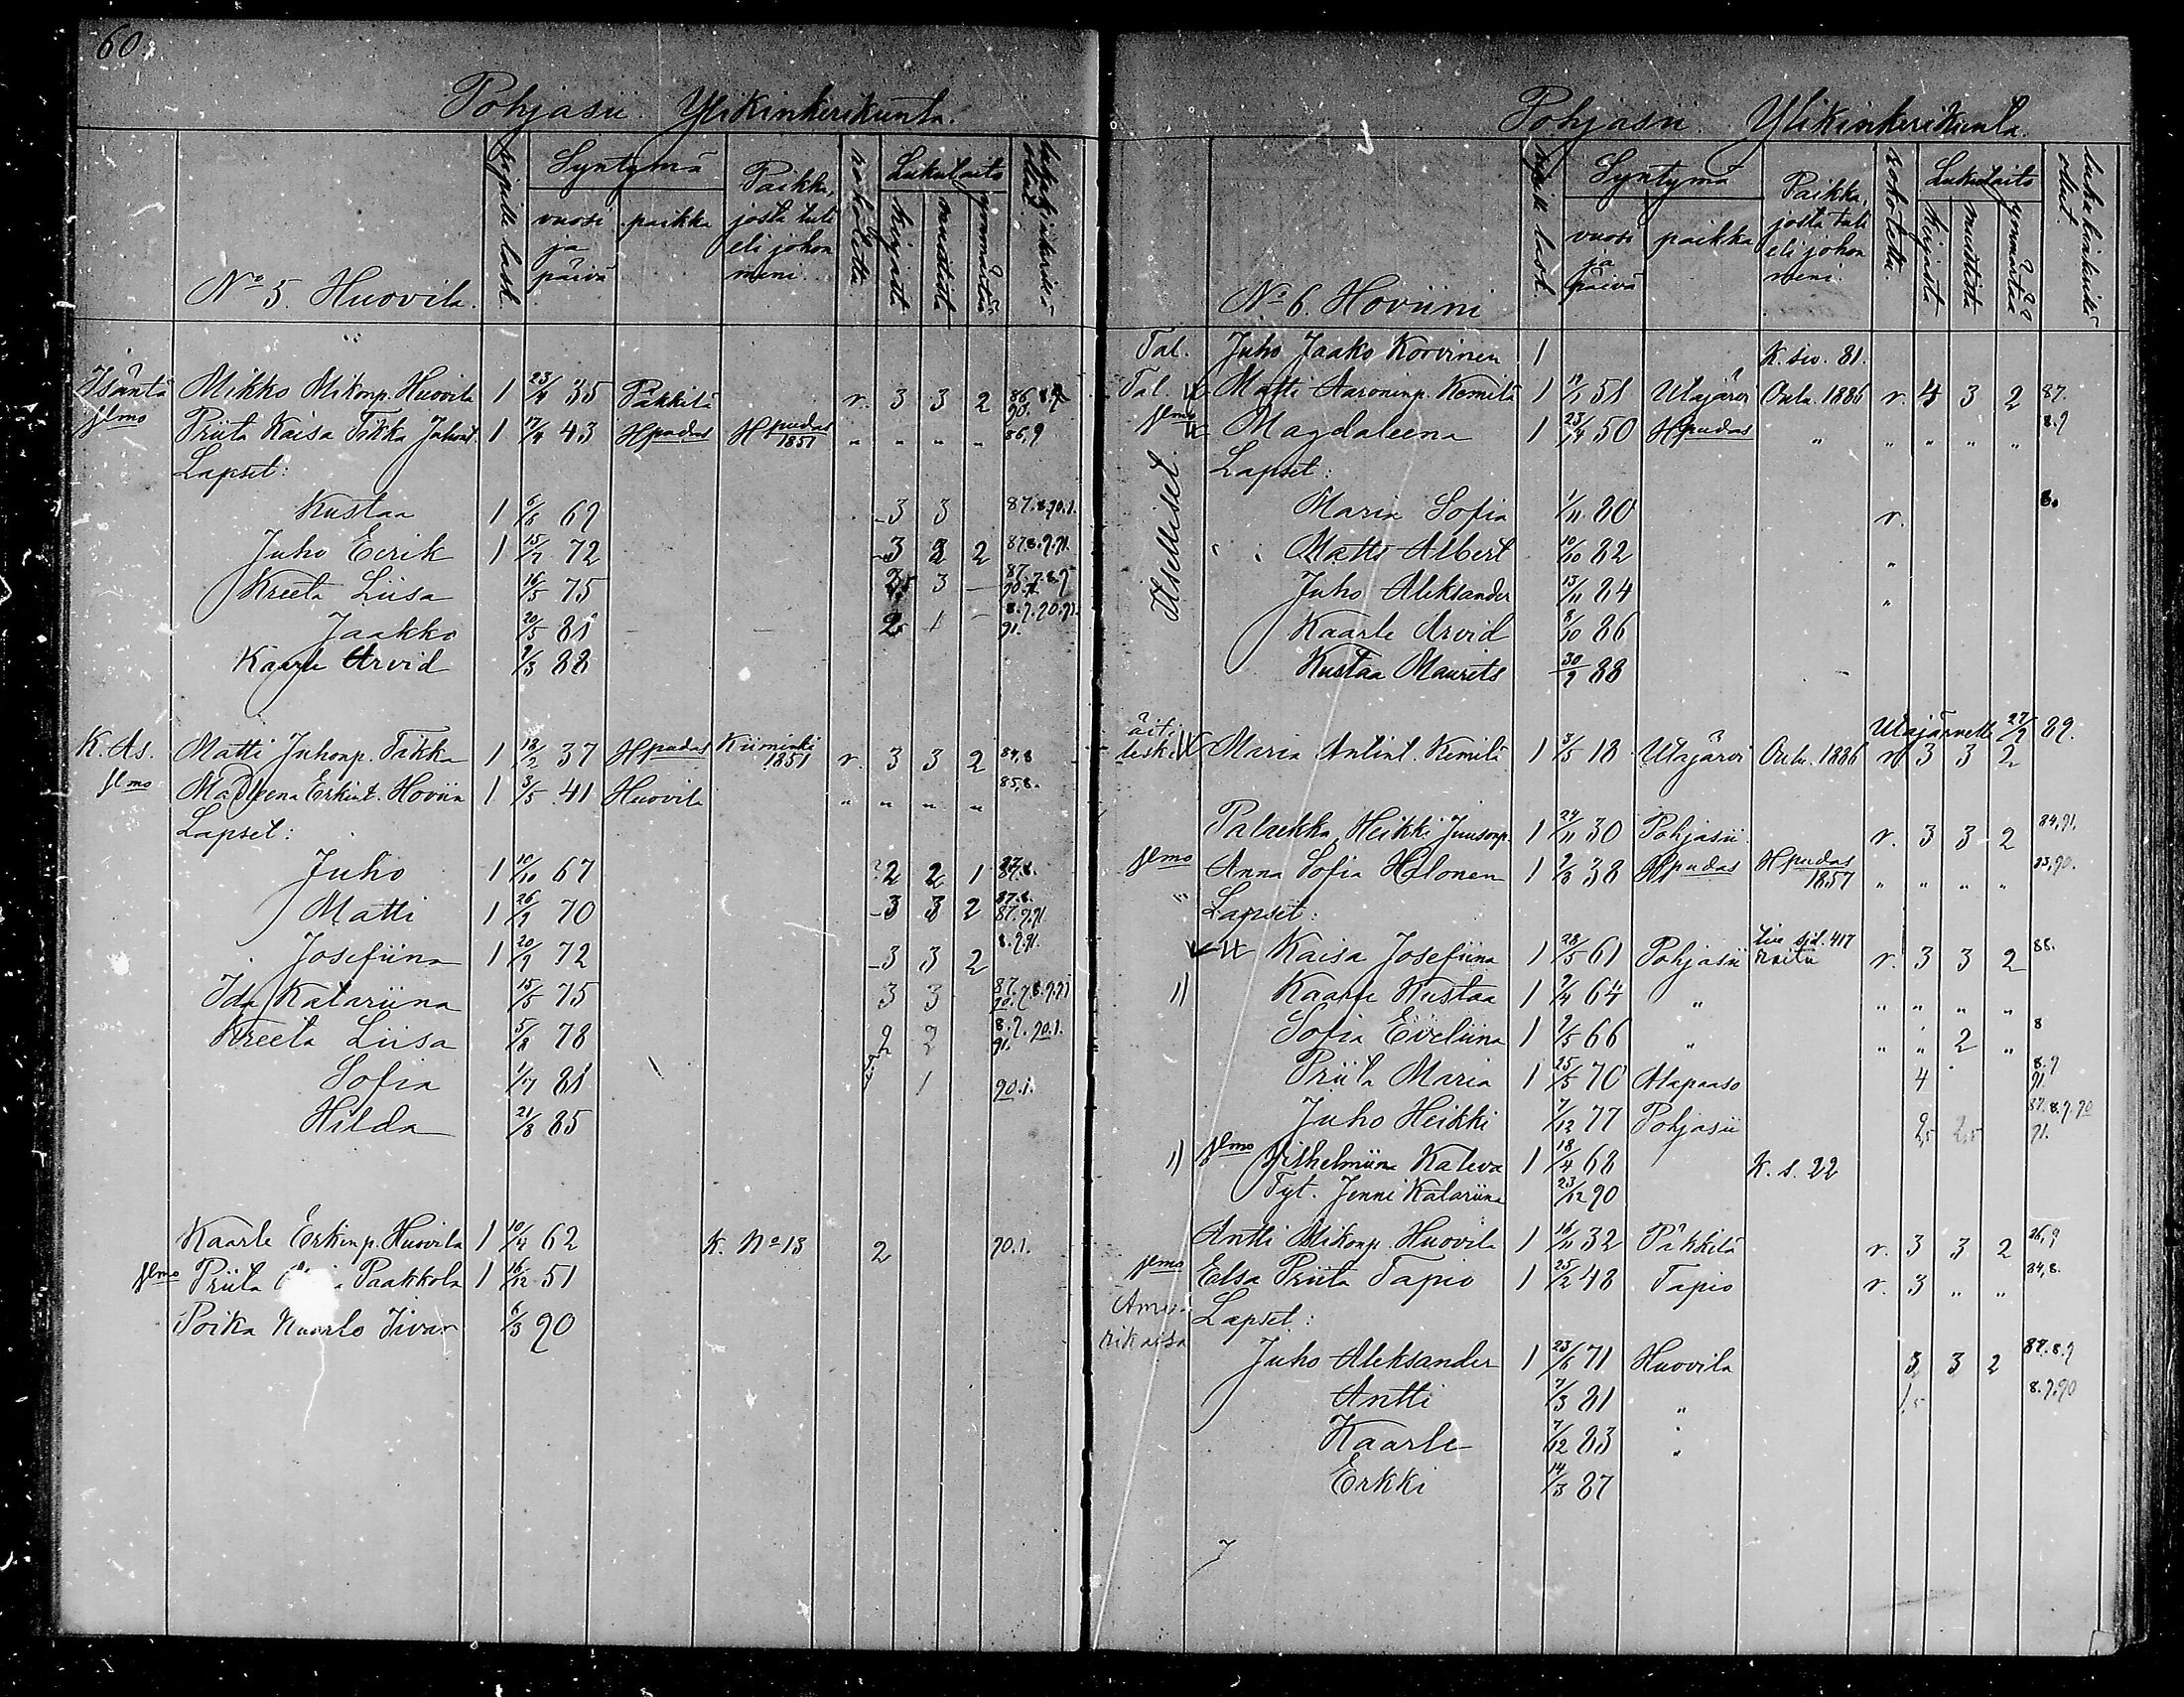 60.
Pohjasii. Ylikinkerikunta.
Syntymä Lukutaito
vuosi ja päivä paikka Paikka, josta tuli eli johon meni. rokotettu kirjasta muistista ymmärtää
No 5. Huovila.
Isäntä Mikko Mikonp. Huovila 1 23/4 35 Päkkilä r. 3 3 2
vmo Priita Kaisa Tikka Juhont. 1 17/4 43 Hpudas Hpudas 1857 " " " " 86,9
Lapset:
Kustaa 1 6/6 69 3 3 87.8.90.1.
Juho Eerik 1 15/7 72 3 3 2 87.8.9.91.
Kreeta Liisa 16/5 75 2,5 3 —
Jaakko 20/5 81 2 1 — 8.9.90.91. 91.
Kaarle Arvid 9/3 88
K. As. Matti Juhonp. Tikka 1 18/2 37 Hpudas Kiiminki 1851 r. 3 3 2 84,8
vmo Madleena Erkint. Hoviin 1 3/5 41 Huovila " " " " 85,8.
Lapset:
Juho 1 10/10 67 2 2 1 87.8.
Matti 1 26/9 70 3 3 2 87.8. 87.9.91.
Josefiina 1 20/9 72 3 3 2 8.9.91.
Ida Katariina 15/5 75 3 3
Kreeta Liisa 5/8 78 2 2 8.9.90.1. 91.
Sofia 1/7 81 1 90.1.
Hilda 21/8 85
Kaarle Erkinp. Huovila 1 10/4 62 K. No 13 2 90.1.
vmo Priita Paakkola 1 16/12 51
Poika Kaarlo Iivar 6/3 90
Pohjasii. Ylikinkerikunta.
Syntymä Lukutaito
vuosi ja päivä paikka Paikka, josta tuli eli johon meni. rokotettu kirjasta muistista ymmärtää
No 6. Hoviini
Tal. Juho Jaako Korvinen 1 K. siv. 81.
Tal. Matti Aaroninp. Kemilä 1 51 Utajärvi Oulu. 1886 r. 4 3 2 87.
vmo Magdaleena 1 50 Hpudas " " " " " 8.9
Itselliset.
Lapset:
Maria Sofia 1/11 80 r. 8.
Matti Albert 10/10 82 "
Juho Aleksander 13/11 84 "
Kaarle Arvid 8/10 86
Kustaa Maurits 30/9 88
Utajärvelle 27/9 89.
äiti leski Maria Antint. Kemilä 1 3/5 18 Utajärvi Oulu. 1886 r 3 3 2
Palaekka, Heikki Juusonp. 1 24/11 30 Pohjasii. r. 3 3 2 84,91.
vmo Anna Sofia Halonen 1 2/8 38 Hpudas Hpudas 1857 " " " "
" Lapset:
Kaisa Josefiina 1 28/5 61 Pohjasii r. 3 3 2 88.
1) Kaarle Kustaa 1 2/4 64 " " " " "
Sofia Eveliina 1 9/5 66 " " " 2 " 8
Priita Maria 1 25/5 70 Alapaaso 4 8.9 91.
Juho Heikki 7/12 77 Pohjasii 2,5 2,5 87.8.9.90 91.
1) vmo Vilhelmiina Kaleva 1 18/4 68 K. s. 22
Tyt. Jenni Katariina 23/12 90
Antti Mikonp. Huovila 1 16/11 32 Päkkilä r. 3 3 2 86,9
vmo Elsa Priita Tapio 1 25/2 48 Tapio r. 3 " " 84,8.
Amerikassa
Lapset:
Juho Aleksander 1 23/6 71 Huovila 3 3 2 87.8.9
Antti 7/3 81 " 1,5 8.9.90
Kaarle 7/12 83 "
Erkki 14/3 87